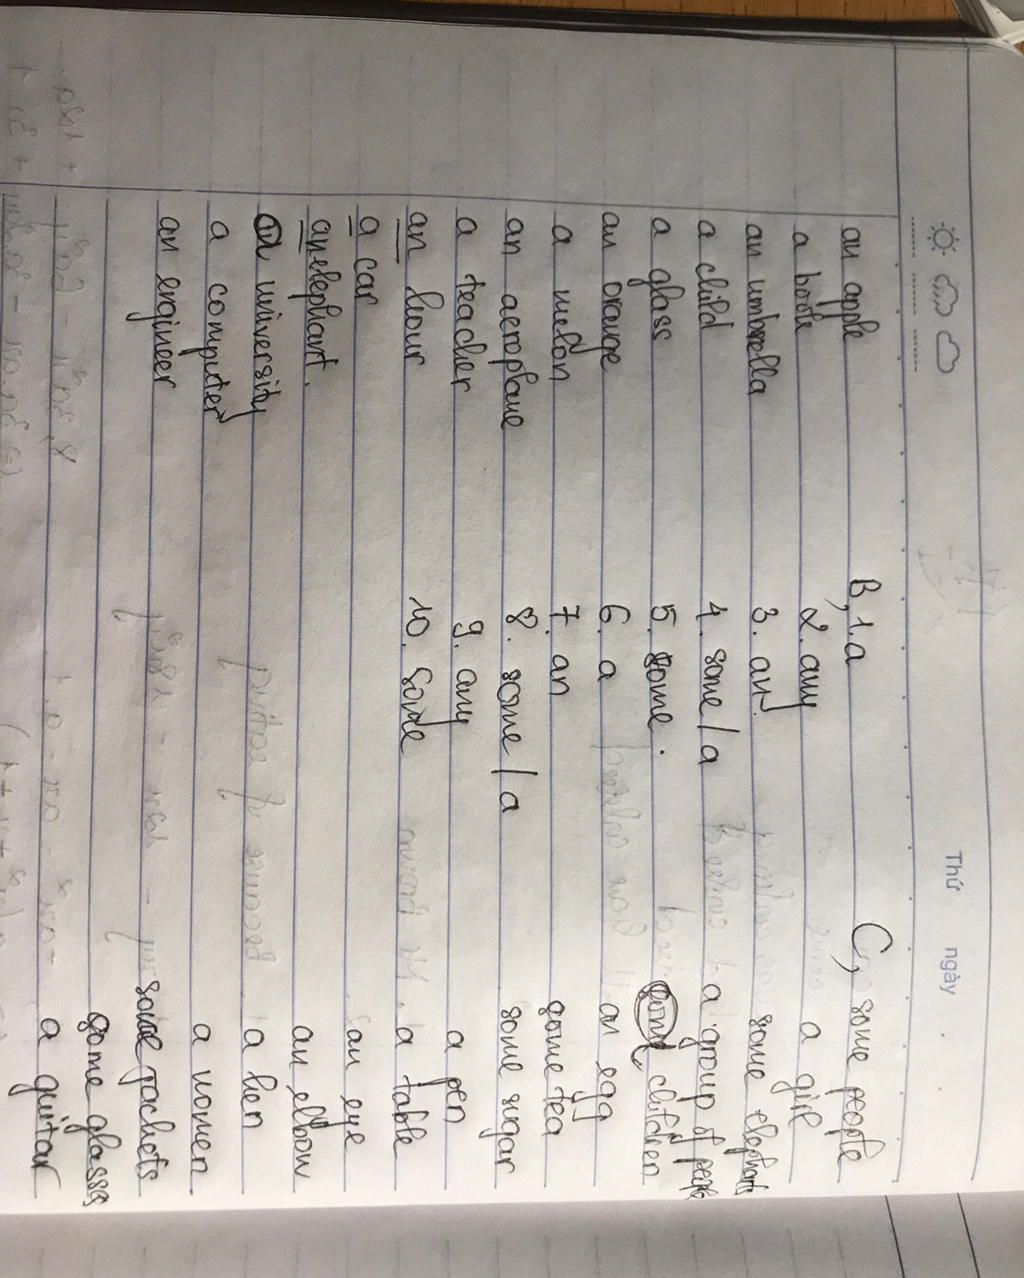 Thứ ngày
an apple B, 1. a C, some people
a book 2. any a girl
an umbrella 3. an some elephants
a child 4. some/a a group of people
a glass 5. some. some children
an orange 6. a an egg
a melon 7. an some tea
an aeroplane 8. some/a some sugar
a teacher 9. any a pen
an hour 10. some a table
a car an eye
an elephant. an elbow
a university a hen
a computer a women
an engineer some jackets
some glasses
a guitar